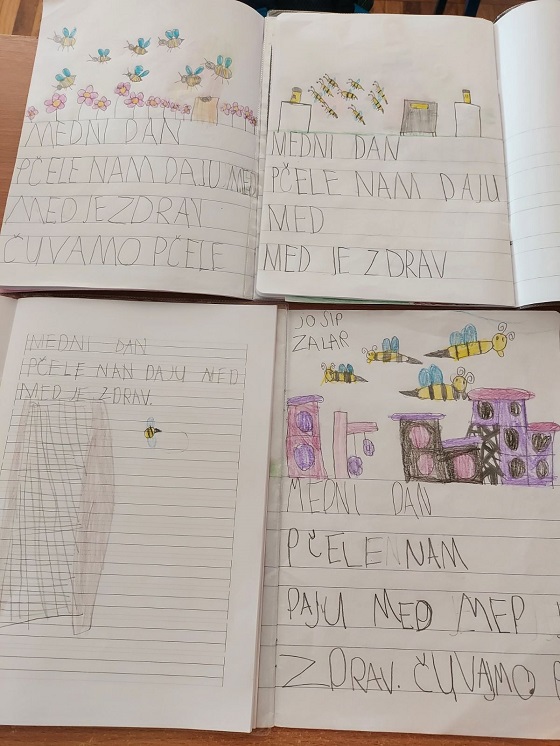 MEDNI DAN
PČELE NAM DAJU MED
MED JE ZDRAV
ČUVAMO PČELE
MEDNI DAN
PČELE NAM DAJU
MED
MED JE ZDRAV
MEDNI DAN
PČELE NAN DAJU NED
MED JE ZDRAV.
JOSIP
ZALAR
MEDNI DAN
PČELE NAM
PAJU MED MEP
ZDRAV. ČUVAJMO